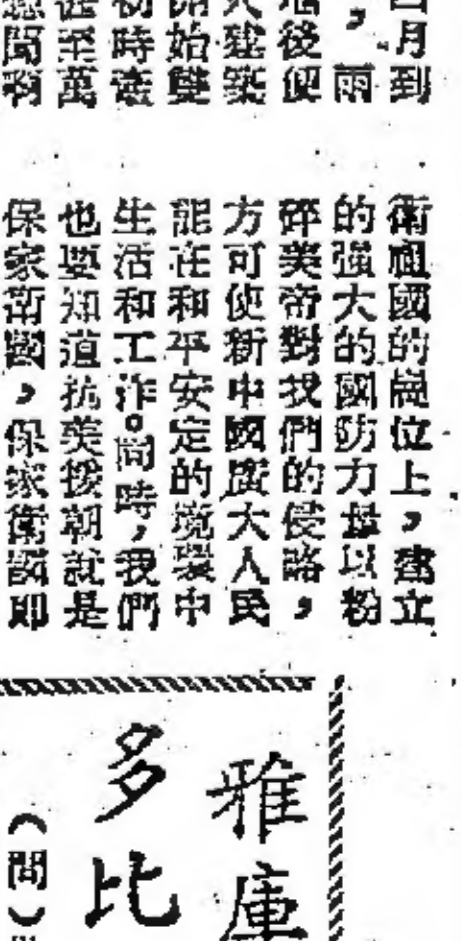 四月到
，雨
地後便
大建築
開始雙
初時
甚至萬
聞啊
衛祖國的崗位上，建立
的强大的國防力量以粉
碎美帝對我們的侵略，
方可使新中國廣大人民
能在和平安定的境環中
生活和工作。同時，我們
也要知道抗美援朝就是
保家衛國，保家衛國即
雅庫
多比
（問）